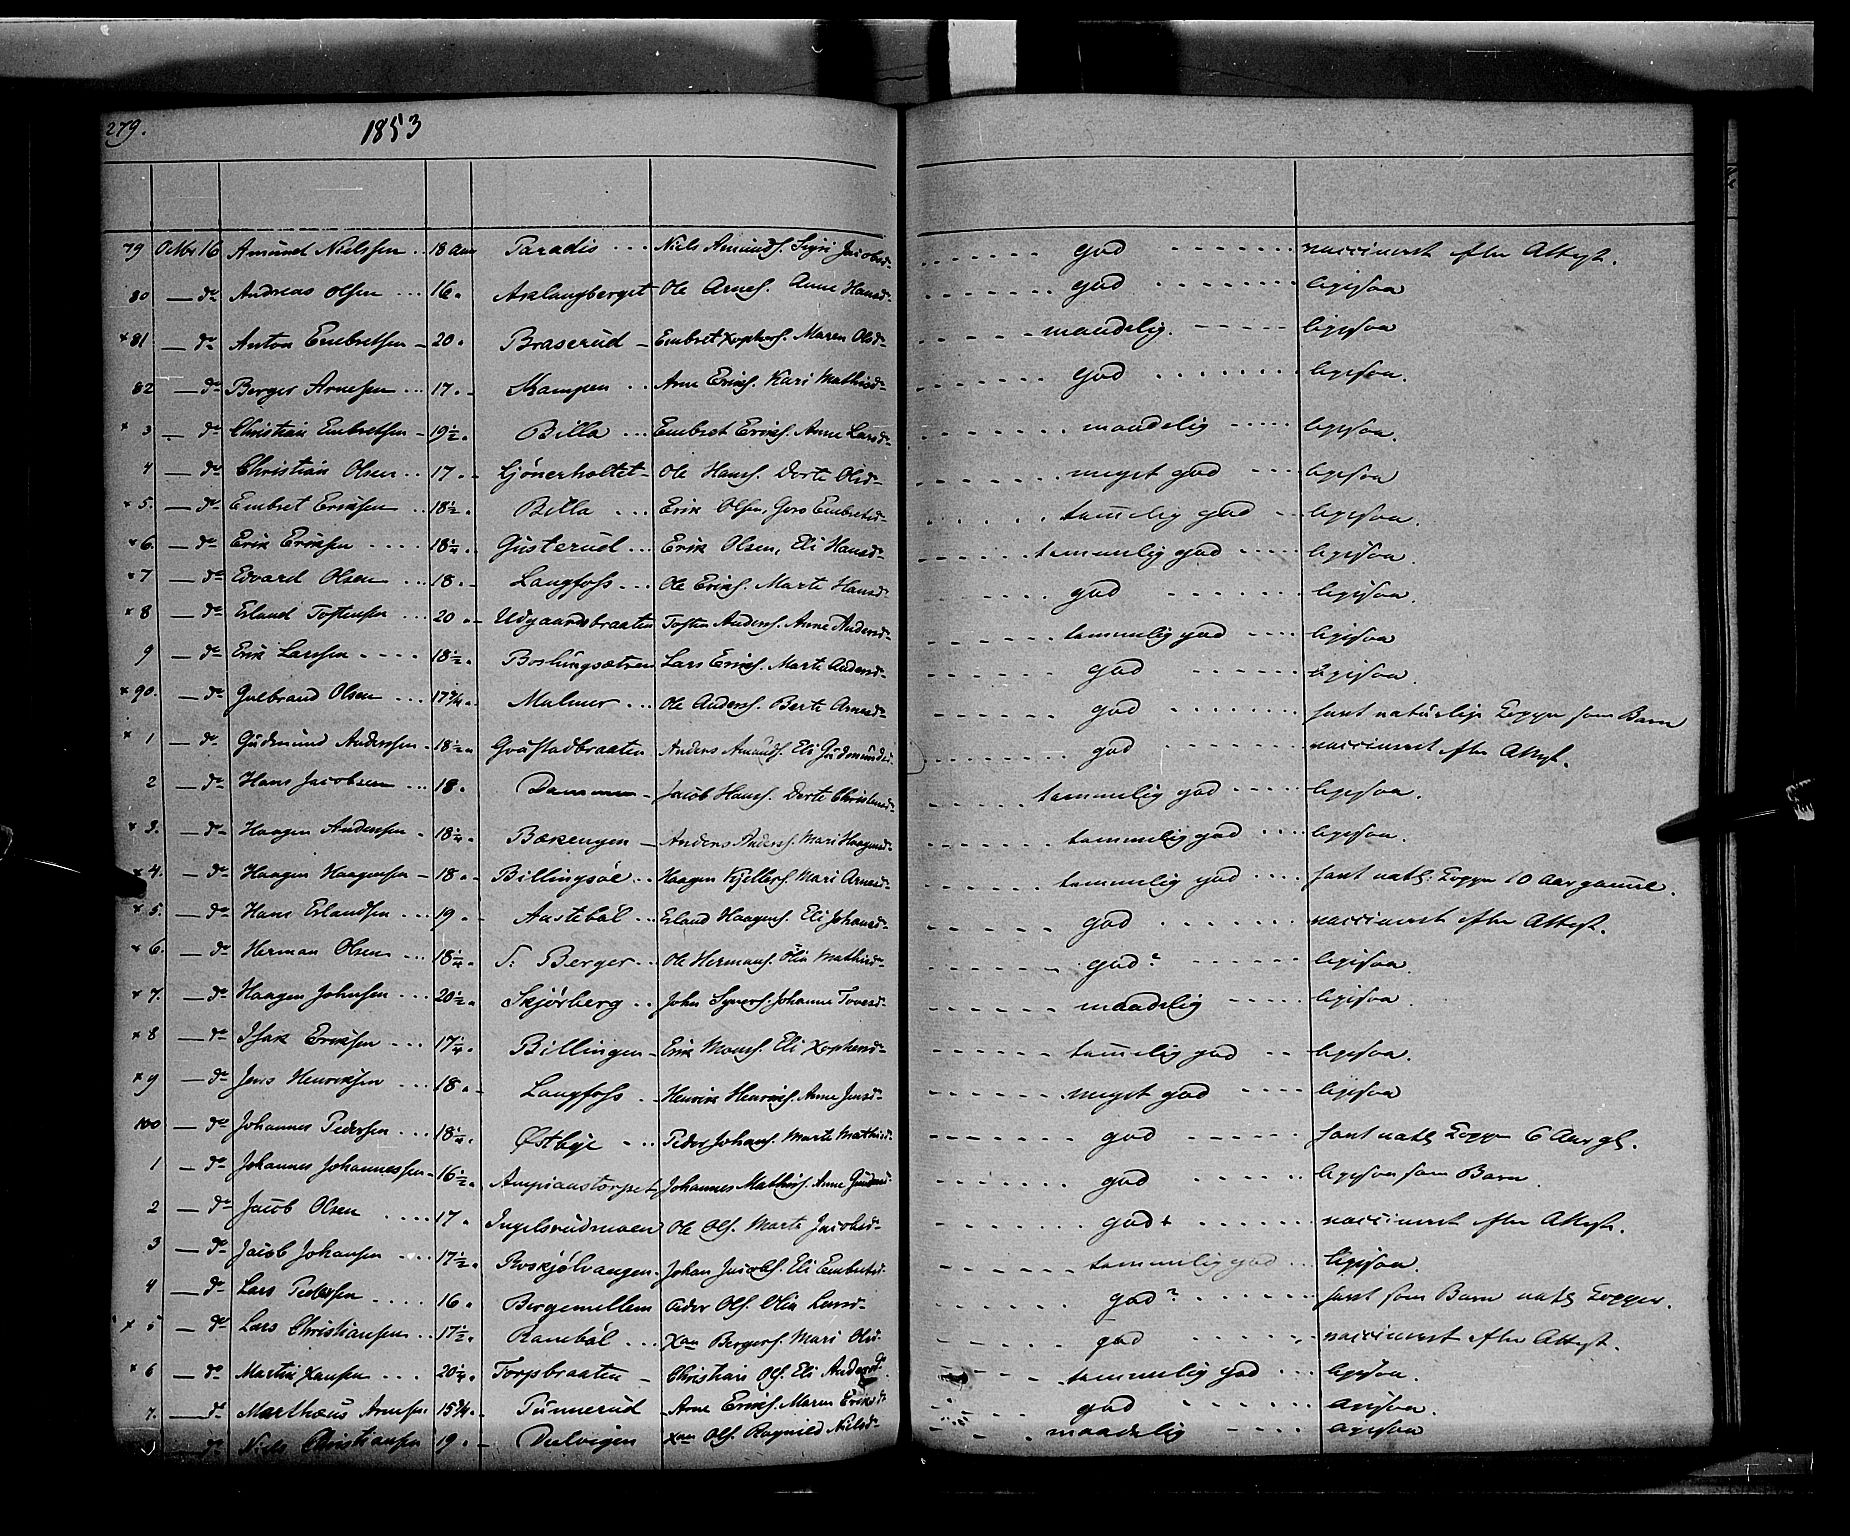 279.
1853
79 Octbr 16 Amund Nielssen .. 18 Aar Paradis ... Niels Amunds. Sigri Jacobsd- god vaccineret efter Attest.
80 — do Andreas Olsen ... 16. Aslangberget Ole Arnes. Anne Hansd- god ligesaa
×81 — do Anton Embretsen - 20. Braserud - Embret Xophers. Maren Olsd- maadelig. ligesaa
82 — do Berger Arnesen ... 17. Kampen ... Arne Eriks. Kari Mathisd- god ligesaa.
×3 — do Christian Embretsen - 19½. Billa ... Embret Eriks. Anne Larsd- maadelig ligesaa.
4 — do Christian Olsen .. 17. Gjönerholtet- Ole Hans. Dorte Olsd- meget god ligesaa
×5. — do Embret Eriksen .. 18½. Billa ... Erik Olsen, Goro Embretsd- tam̄elig god ligesaa.
×6. — do Erik Eriksen .... 18¼. Gusterud ... Erik Olsen, Eli Hansd- temmelig god ligesaa.
×7 — do Edvard Olsen ... 18. Langfoss ... Ole Eriks. Marte Hansd- god ligesaa.
×8 — do Erland Tostensen .. 20. Udgaardsbraaten Tosten Anders. Anne Andersd- temmelig god ligesaa
9 — do Erik Larssen .... 18½. Boslungsætren Lars Eriks. Marte Andersd- god ligesaa.
×90. — do Gulbrand Olsen ... 17¾. Malmer ... Ole Anders. Berte Arnesd- god havt naturlige Kopper som Barn
×1 — do Gudmund Anderssen - 18½. Graftadbraaten Anders Amunds. Eli Gudmundsd- god vaccineret efter Attest.
2 — do Hans Jacobsen ... 18. Dammen - Jacob Hans. Dorte Christensd- temmelig god ligesaa.
×3. — do Haagen Anderssen - 18¼. Bækengen - Anders Anders. Mari Haagensd- temmelig god ligesaa.
×4. — do Haagen Haagensen - 18. Billingsöe .. Haagen Kjellers. Mari Arnesd- temmelig god havt natl. Kopper 10 Aar gam̄el.
×5. — do Hans Erlandsen ... 19. Aastebøl ... Erland Haagens. Eli Johansd- god vaccineret efter Attest.
×6. — do Herman Olsen ... 18¼. S: Berger .. Ole Hermans. Olia Mathisd- god? ligesaa.
×7. — do Haagen Johnsen ... 20½. Skjørberg .. John Syvers. Johanne Tovesd- maadelig ligesaa.
×8 — do Isak Eriksen ... 17¼. Billingen - Erik Mons. Eli Xophersd- tam̄elig god ligesaa.
×9 — do Jens Henriksen ... 18. Langfoss - Henrik Henriks. Anne Jensd- meget god ligesaa
100 — do Johannes Pederssen ... 18¼. Østbye ... Peder Johans. Marte Mathisd- god havt natl Kopper 6 Aar gl.
1 — do Johannes Johannessen - 16½. Ampianstorpet Johannes Mathis. Anne god ligesaa som Barn.
2 — do Jacob Olsen .... 17. Ingelsrudmoen Ole Ols. Marte Jacobsd- god+ vaccineret efter Attest.
3 — do Jacob Johansen ... 17½. Roskjølvangen. Johan Jacobs. Eli Embretsd- temmelig god ligesaa.
4 — do Lars Pederssen .... 16. Bergemellem Peder Ols. Olia Larsd- god? havt som Barn natl Kopper.
×5 — do Lars Christiansen .. 17½. Rambøl ... Xan Bergers. Mari Ols- god vaccineret efter Attest.
×6 — do Martin Xansen ... 20¼. Torpsbraaten - Christian Ols. Eli Andersd. temmelig god ligesaa.
7. — do Marthæus Arnesen. 15¾. Tunnerud - Arne Eriks. Maren Eriksd- god ligesaa.
— do Niels Christiansen 19. Dulvigen Xan Ols. Ragnild Nielsd- maadelig ligesaa